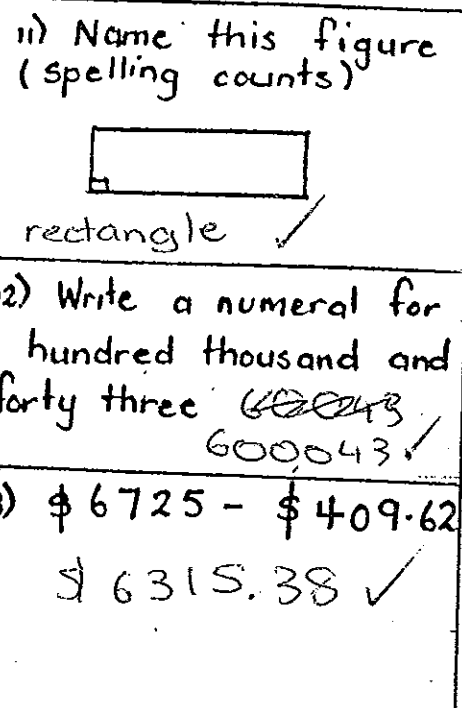 11) Name this figure
(spelling counts)
rectangle ✓
2) Write a numeral for
hundred thousand and
forty three 60043
600043 ✓
) $6725 - $409.62
$6315.38 ✓